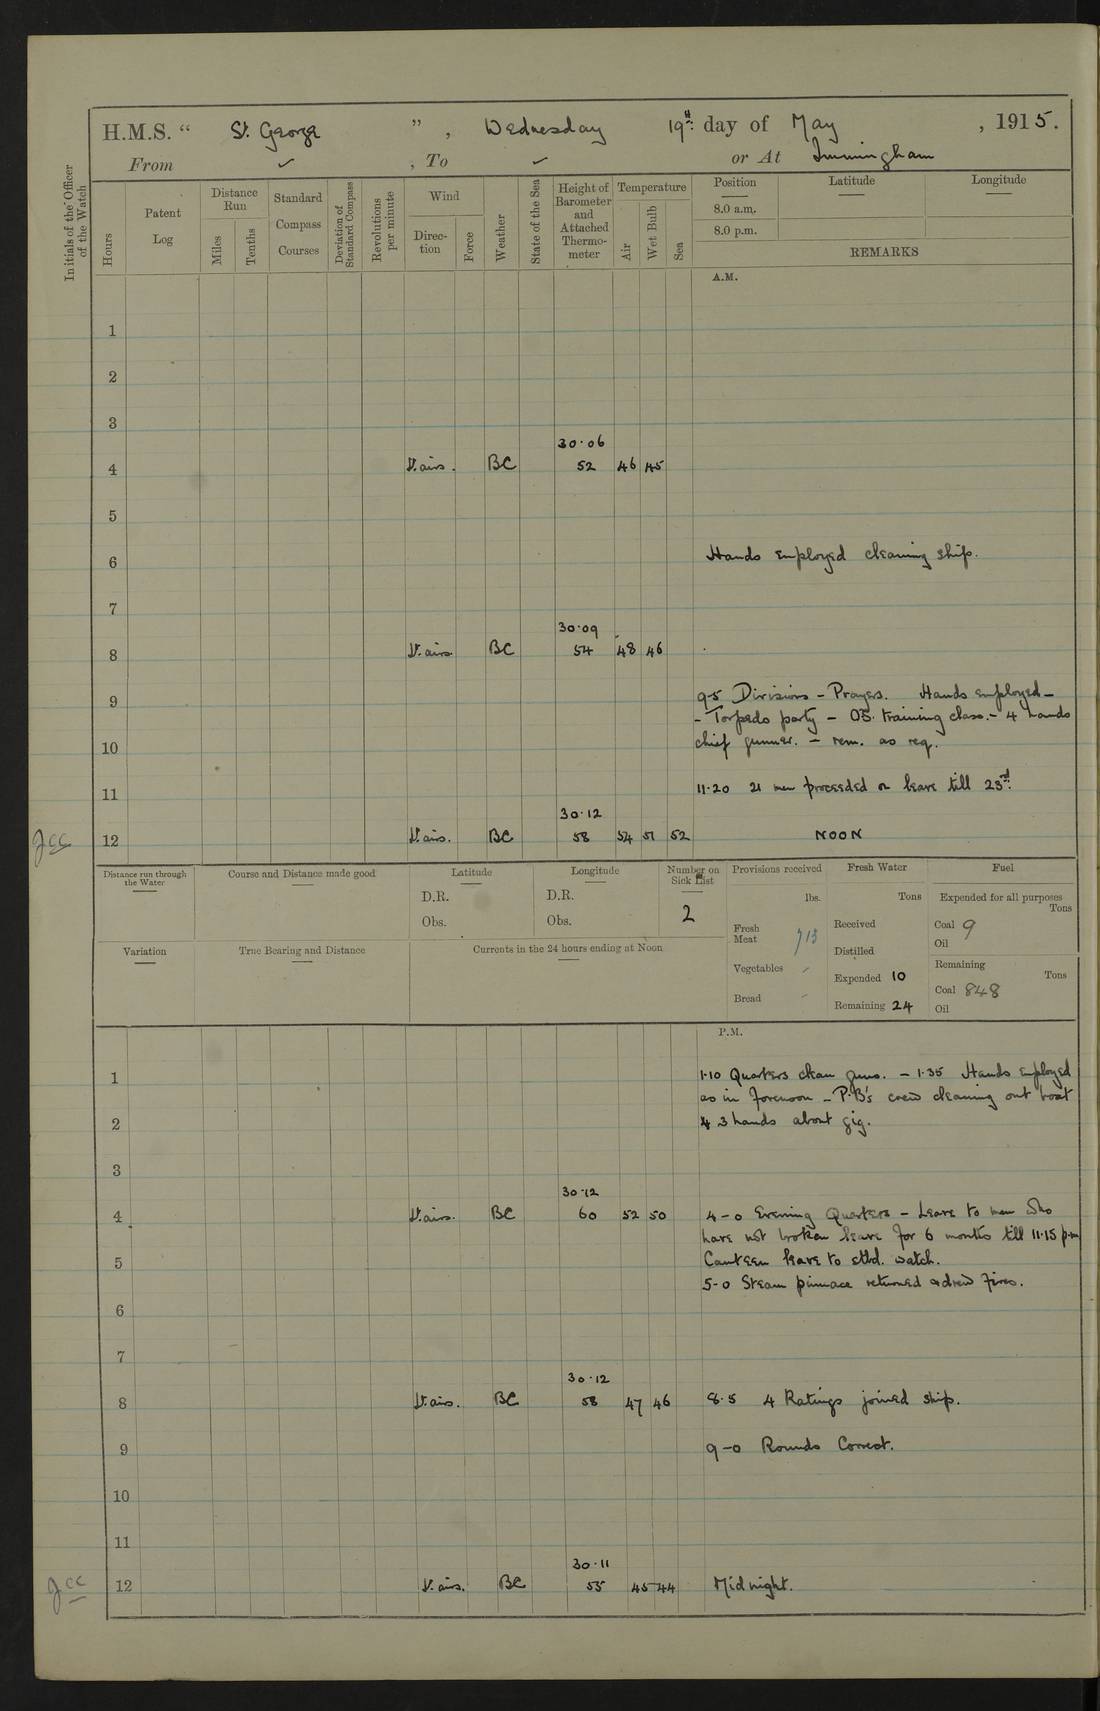 H.M.S. “ St. George ” , Wednesday 19th day of May , 1915.
From ✓ , To ✓ or At Immingham
Initials of the Officer of the Watch
Hours
Patent Log
Distance Run
Miles
Tenths
Standard Compass Courses
Deviation of Standard Compass
Revolutions per minute
Wind
Direction
Force
Weather
State of the Sea
Height of Barometer and Attached Thermometer
Temperature
Air
Wet Bulb
Sea
Position
Latitude
Longitude
8.0 a.m.
8.0 p.m.
REMARKS
A.M.
1
2
3
30.06
4 lt. airs. BC 52 46 45
5
6 Hands employed cleaning ship.
7
30.09
8 lt. airs. BC 54 48 46
9 9.5 Divisions - Prayers. Hands employed -
- Torpedo party - OS. training class. - 4 hands
10 chief gunner. - rem. as req.
11 11.20 21 men proceeded on leave till 23rd.
30.12
JCC 12 lt. airs. BC 58 54 51 52 NOON
Distance run through the Water
Course and Distance made good
Latitude
D.R.
Obs.
Longitude
D.R.
Obs.
Number on Sick List
2
Provisions received
lbs.
Fresh Meat 713
Vegetables -
Bread -
Fresh Water
Tons
Received
Distilled
Expended 10
Remaining 24
Fuel
Expended for all purposes
Tons
Coal 9
Oil
Remaining
Tons
Coal 848
Oil
Variation
True Bearing and Distance
Currents in the 24 hours ending at Noon
P.M.
1 1.10 Quarters clean guns. - 1.35 Hands employed
as in forenoon - P.B's crew cleaning out boat
2 & 3 hands about gig.
3
30.12
4 lt. airs. BC 60 52 50 4-0 Evening Quarters - Leave to men who
have not broken leave for 6 months till 11.15 p.m
5 Canteen leave to stbd. watch.
5-0 Steam pinnace returned & drew fires.
6
7
30.12
8 lt. airs. BC 58 47 46 8.5 4 Ratings joined ship.
9 9-0 Rounds Correct.
10
11
30.11
JCC 12 lt. airs. BC 55 45 44 Midnight.